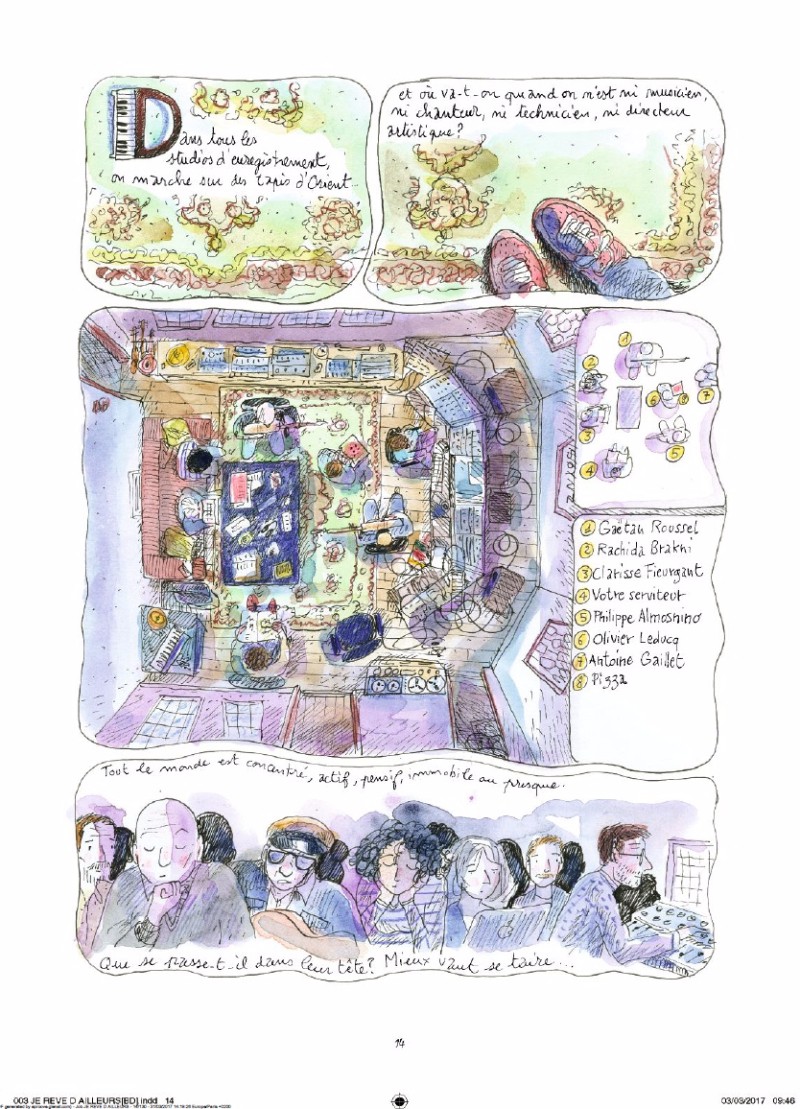 Dans tous les
studios d'enregistrement,
on marche sur des tapis d'Orient...
et où va-t-on quand on n'est ni musicien,
ni chanteur, ni technicien, ni directeur
artistique?
1
2
3
4
5
6
8
7
1 Gaëtan Roussel
2 Rachida Brakni
3 Clarisse Fieurgant
4 Votre serviteur
5 Philippe Almosnino
6 Olivier Leducq
7 Antoine Gaillet
8 Pizza
Tout le monde est concentré, actif, pensif, immobile ou presque.
Que se passe-t-il dans leur tête? Mieux vaut se taire...
14
003 JE REVE D AILLEURS[BD].indd 14
03/03/2017 09:46